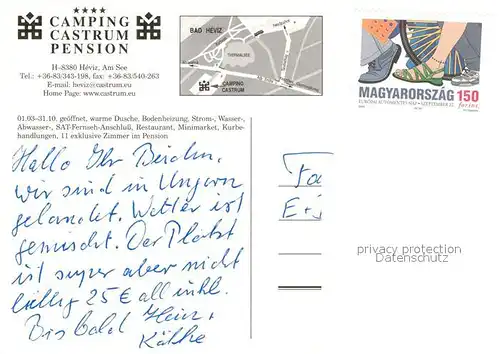 CAMPING
CASTRUM
PENSION
H-8380 Hévíz, Am See
Tel.: +36-83/343-198, fax: +36-83/540-263
E-mail: heviz@castrum.eu
Home Page: www.castrum.eu
01.03-31.10. geöffnet, warme Dusche, Bodenheizung, Strom-, Wasser-,
Abwasser-, SAT-Fernseh-Anschluß, Restaurant, Minimarket, Kurbe-
handlungen, 11 exklusive Zimmer im Pension
BAD HÉVÍZ
THERMALSEE
CAMPING
CASTRUM
MAGYARORSZÁG 150
EURÓPAI AUTÓMENTES NAP • SZEPTEMBER 22. forint
Hallo Ihr Beiden,
wir sind in Ungarn
gelandet. Wetter ist
gemischt. Der Platz
ist super aber nicht
billig 25 € all inkl.
Bis bald Heinz,
Käthe
privacy protection
Datenschutz